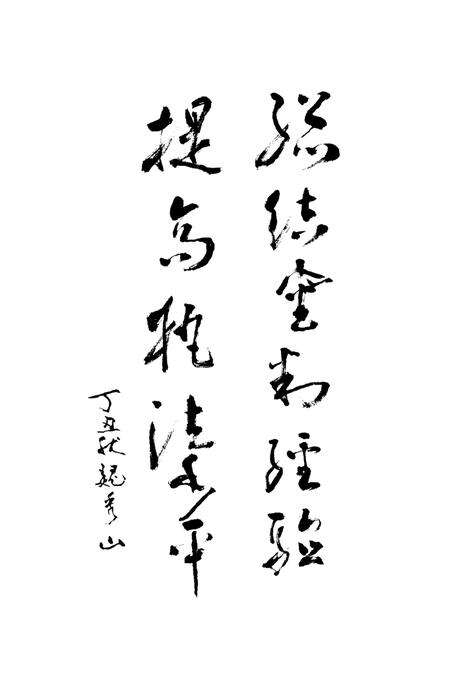 總結審判經驗
提高執法水平
丁丑秋魏秀山